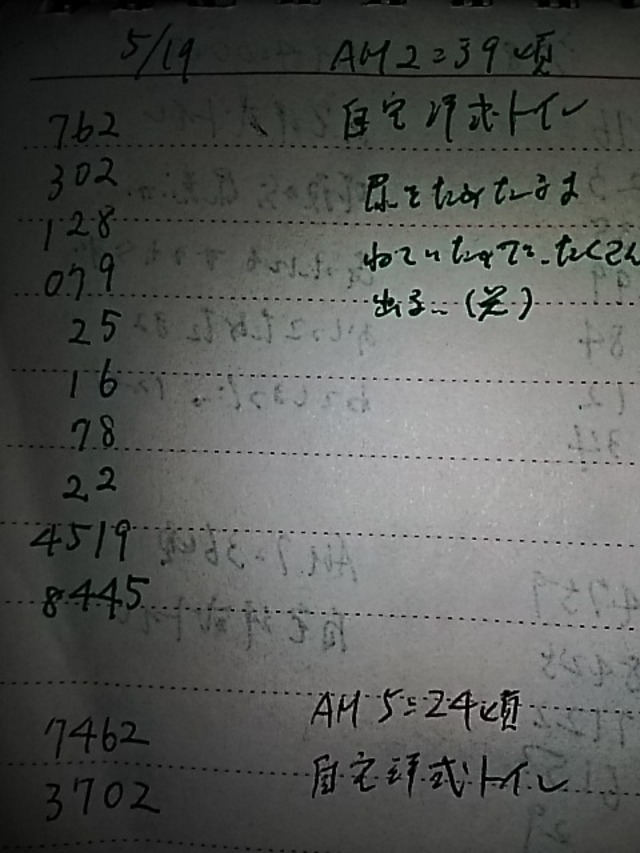 5/19 AM2:39頃
762 自宅洋式トイレ
302 尿をためたまま
128 ねていたので、たくさん
079 出る…(笑)
25
16
78
22
4519
8445
AM 5:24頃
7462 自宅洋式トイレ
3702